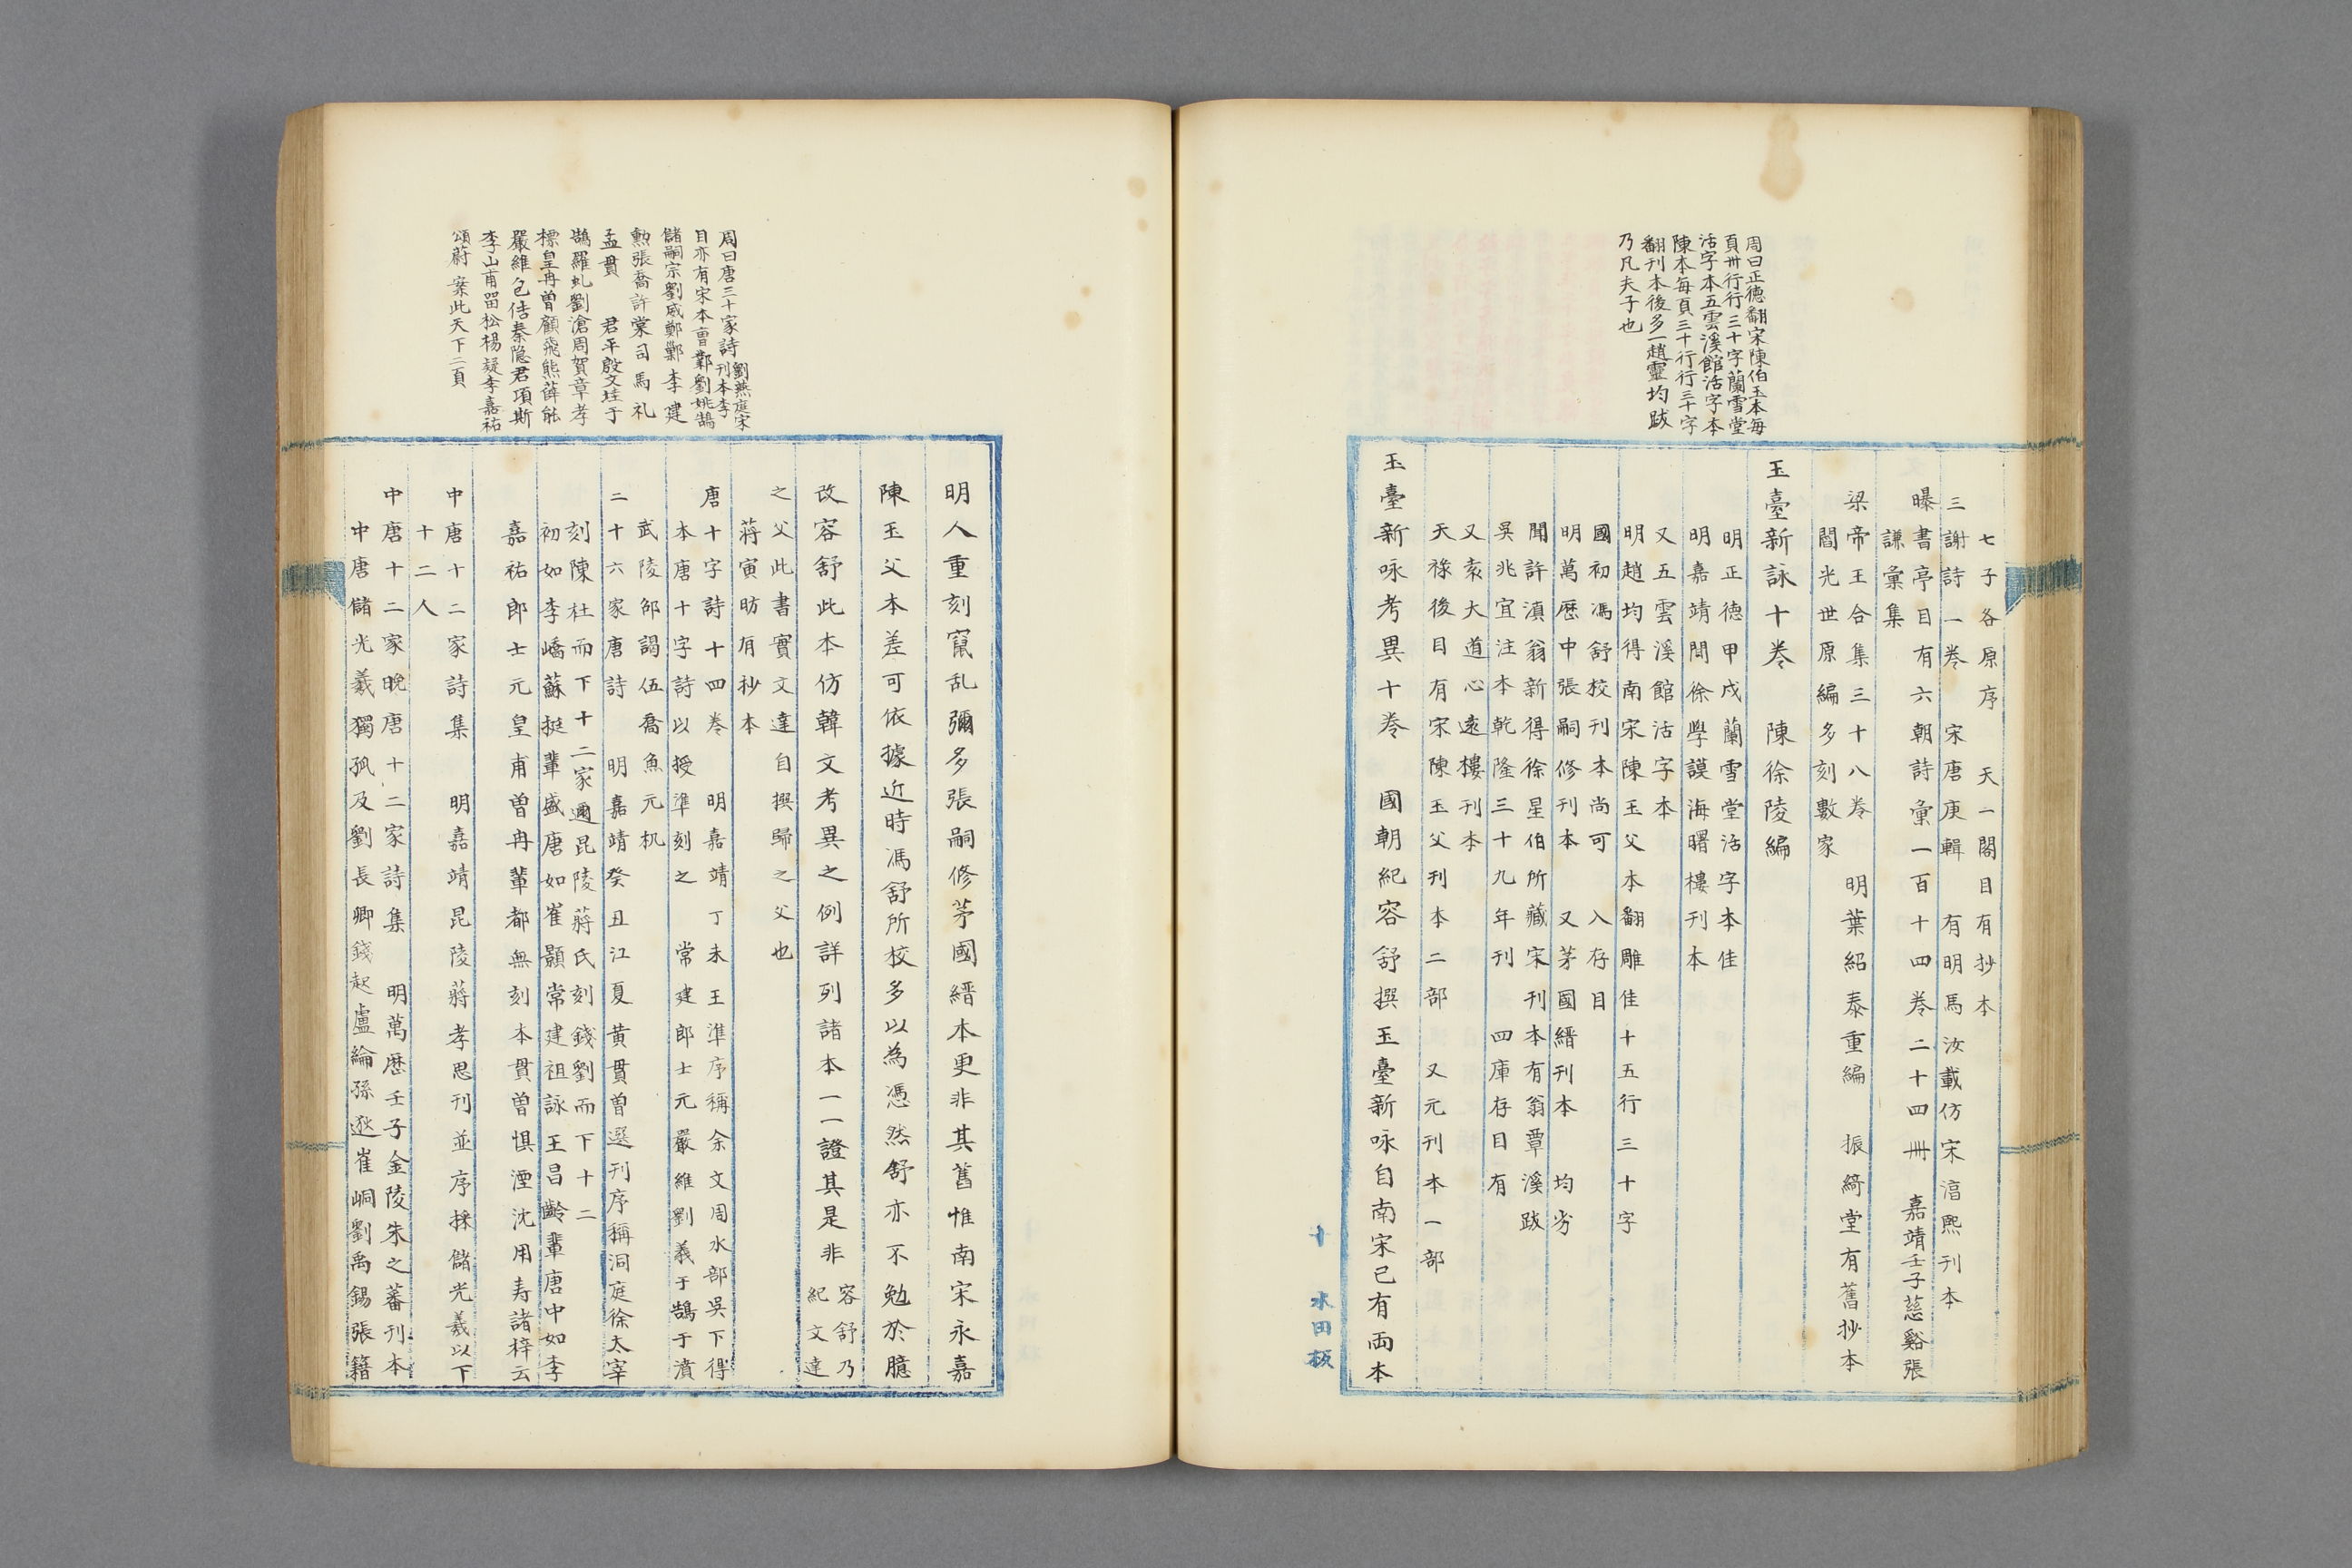 周曰正德翻宋陳伯玉本每
頁卅行行三十字蘭雪堂
活字本五雲溪館活字本
陳本每頁三十行行三十字
翻刊本後多一趙靈均跋
乃凡夫子也
七子各原序　天一閣目有抄本
三謝詩一卷　宋唐庚輯　有明馬汝載仿宋淳熙刊本
曝書亭目有六朝詩彙一百十四卷二十四冊　嘉靖壬子慈谿張
謙彙集
梁帝王合集三十八卷　明葉紹泰重編　振綺堂有舊抄本
閻光世原編多刻數家
玉臺新詠十卷　陳徐陵編
明正德甲戌蘭雪堂活字本佳
明嘉靖間徐學謨海曙樓刊本
又五雲溪館活字本
明趙均得南宋陳玉父本翻雕佳十五行三十字
國初馮舒校刊本尚可　入存目
明萬歷中張嗣修刊本　又茅國縉刊本　均劣
聞許滇翁新得徐星伯所藏宋刊本有翁覃溪跋
吳兆宜注本乾隆三十九年刊　四庫存目有
又袁大道心遠樓刊本
天祿後目有宋陳玉父刊本二部　又元刊本一部
玉臺新咏考異十卷　國朝紀容舒撰玉臺新咏自南宋已有両本
十　水田板
周曰唐三十家詩劉燕庭宋刊本李
目亦有宋本曺鄴劉姚鵠
儲嗣宗劉威鄭鄴李建
勲張喬許棠司馬礼
孟貫　君平殷文珪于
鵠羅虬劉滄周賀章孝
標皇冉曽顧飛熊薛能
嚴維包佶秦隐君項斯
李山甫畱松楊凝李嘉祐
頌蔚案此天下二頁
明人重刻竄乱彌多張嗣修茅國縉本更非其舊惟南宋永嘉
陳玉父本差可依據近時馮舒所校多以為憑然舒亦不勉於臆
改容舒此本仿韓文考異之例詳列諸本一一證其是非　容舒乃
紀文達
之父此書實文達自撰歸之父也
蔣寅昉有秒本
唐十字詩十四卷　明嘉靖丁未王準序稱余文周水部吳下得
本唐十字詩以授準刻之　常建郎士元嚴維劉義于鵠于濆
武陵邵謁伍喬魚元机
二十六家唐詩　明嘉靖癸丑江夏黃貫曽選刊序稱洞庭徐太宰
刻陳杜而下十二家邇昆陵蔣氏刻錢劉而下十二
初如李嶠蘇挺輩盛唐如崔顥常建祖詠王昌齡輩唐中如李
嘉祐郎士元皇甫曽冉輩都無刻本貫曽惧湮沈用寿諸梓云
中唐十二家詩集　明嘉靖昆陵蔣孝思刊並序採儲光羲以下
十二人
中唐十二家晚唐十二家詩集　明萬歷壬子金陵朱之蕃刊本
中唐儲光羲獨孤及劉長卿錢起盧綸孫逖崔峒劉禹錫張籍